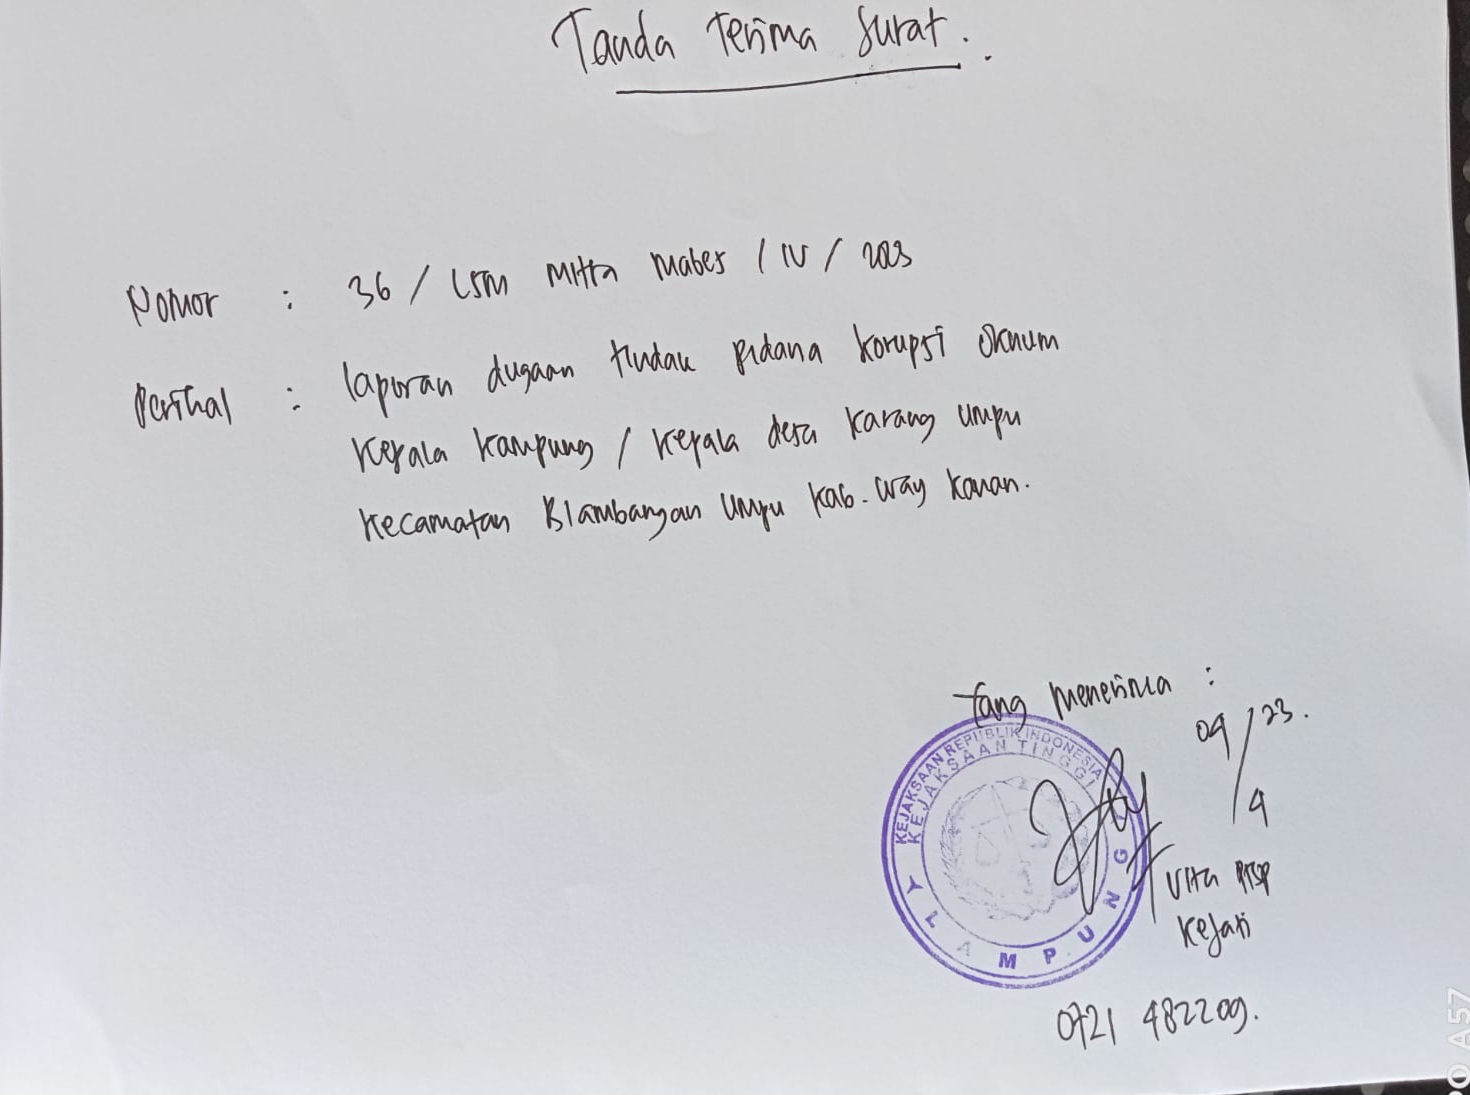 Tanda Terima Surat.
Nomor : 36 / LSM Mitra Mabes / IV / 2023
Perihal : laporan dugaan tindak pidana korupsi oknum
Kepala kampung / Kepala desa Karang Umpu
Kecamatan Blambangan Umpu Kab. Way Kanan.
Yang menerima :
04/23.
4
KEJAKSAAN REPUBLIK INDONESIA
KEJAKSAAN TINGGI
LAMPUNG
Vita PTSP
Kejati
0721 482209.
A57